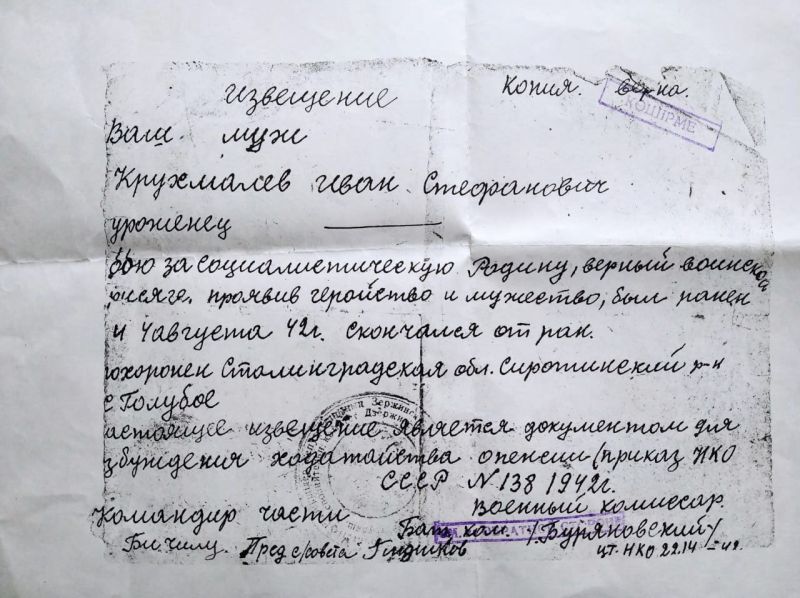 Извещение Копия. верна.
КӨШІРМЕ
Ваш муж
Крухмалев Иван Стефанович
уроженец
бою за социалистическую Родину, верный воинской
рисяге, проявив геройство и мужество, был ранен
и 4 августа 42г. скончался от ран.
охоронен Сталинградская обл. Сиротинский р-н
с Голубое
астоящее извещение является документом для
збуждения ходатайства о пенсии (приказ НКО
СССР N 138 1942г.
Командир части Военный комиссар.
Бат. ком. /Буряновский/
Пред с/совета